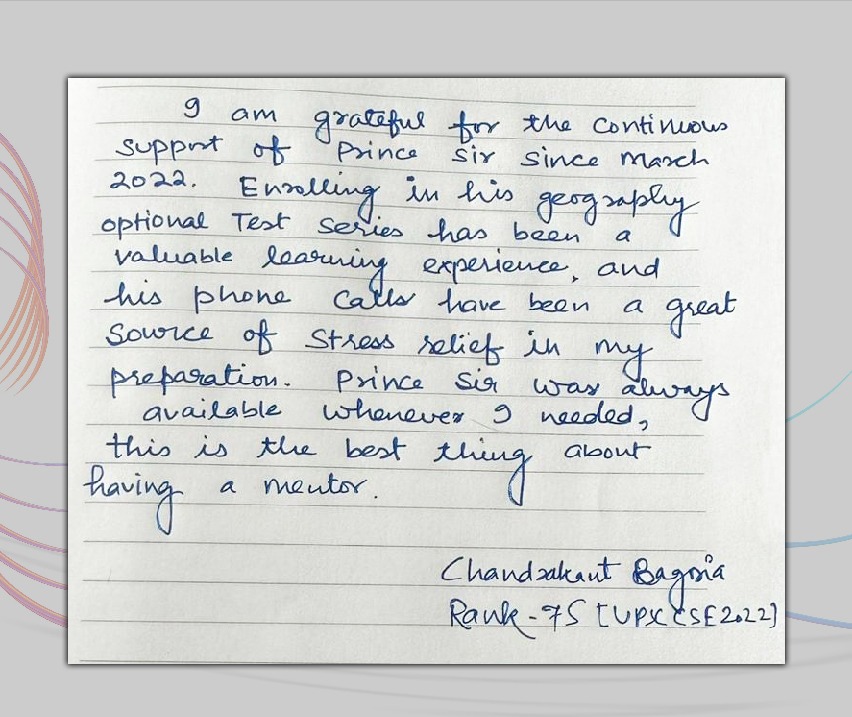 I am grateful for the continuous
support of Prince Sir since March
2022. Enrolling in his geography
optional Test Series has been a
valuable learning experience, and
his phone calls have been a great
source of stress relief in my
preparation. Prince Sir was always
available whenever I needed,
this is the best thing about
having a mentor.
Chandrakant Bagoria
Rank-75 [UPSC CSE2022]